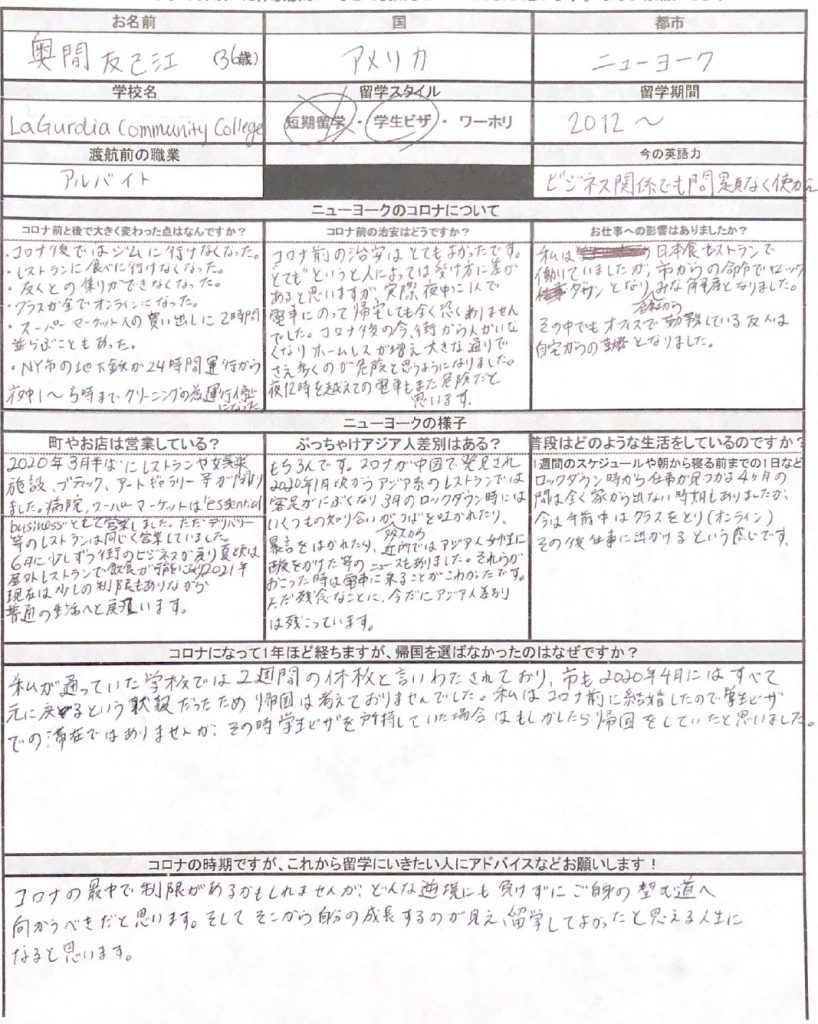 お名前 国 都市
奥間 友己江 (36歳) アメリカ ニューヨーク
学校名 留学スタイル 留学期間
LaGurdia Community College 短期留学・学生ビザ・ワーホリ 2012〜
渡航前の職業 今の英語力
アルバイト ビジネス関係でも問題なく使かえ
ニューヨークのコロナについて
コロナ前と後で大きく変わった点はなんですか?
・コロナ後ではジムに行けなくなった。
・レストランに食べに行けなくなった。
・友人との集りができなくなった。
・クラスが全てオンラインになった。
・スーパーマーケットへの買い出しに2時間
並らぶこともあった。
・NY市の地下鉄が24時間運行から
夜中1〜5時までクリーニングの為運行停止
になった
コロナ前の治安はどうですか?
コロナ前の治安はとてもよかったです。
"とても"というと人によっては受け方に差が
あると思いますが実際夜中に1人で
電車にのって帰宅しても全く恐くありません
でした。コロナ後の今、街から人がいな
くなりホームレスが増え大きな通りで
さえ歩くのが危険と思うようになりました。
夜12時を越えての電車もまた危険だと
思います。
お仕事への影響はありましたか?
私は の日本食レストランで
働いていましたが、市からの命令でロック
ダウンとなり、みな解雇となりました。
会社から
その中でもオフィスで勤務している友人は
自宅からの勤務となりました。
ニューヨークの様子
町やお店は営業している?
2020年3月半ばにレストランや娯楽
施設、ブティック、アートギャラリー等が閉り
ました。病院、スーパーマーケットは"essential
business"として営業しました。ただデリバリー
等のレストランは同じく営業していました。
6月に少しずつ街のビジネスが戻り夏頃は
屋外レストランで飲食が可能になり2021年
現在は少しの制限もありながら
普通の生活へと戻ています。
ぶっちゃけアジア人差別はある?
もちろんです。コロナが中国で発見され
2020年1月頃からアジア系のレストランでは
客足がにぶくなり3月のロックダウン時には
いくつもの知り合いがつばを吐かれたり、
暴言をはかれたり、近所ではアジア人女性に
他人から
酸をかけた等のニュースもありました。それらが
おこった時は電車に乗ることがこわかったです。
ただ残念なことに、今だにアジア人差別
は残こっています。
普段はどのような生活をしているのですか?
1週間のスケジュールや朝から寝る前までの1日など
ロックダウン時から仕事が見つかる4ヶ月の
間は全く家から出ない時期もありましたが、
今は午前中はクラスをとり(オンライン)
その後仕事に出かけるという感じです。
コロナになって1年ほど経ちますが、帰国を選ばなかったのはなぜですか?
私が通っていた学校では2週間の休校と言いわたされており、市も2020年4月にはすべて
元に戻るという状況だったため帰国は考えておりませんでした。私はコロナ前に結婚したので学生ビザ
での滞在ではありませんが、その時学生ビザを所持していた場合はもしかしたら帰国をしていたと思いました。
コロナの時期ですが、これから留学にいきたい人にアドバイスなどお願いします!
コロナの最中で制限があるかもしれませんが、どんな逆境にも負けずにご自身の望む道へ
向かうべきだと思います。そしてそこから自分の成長するのが見え、留学してよかったと思える人生に
なると思います。